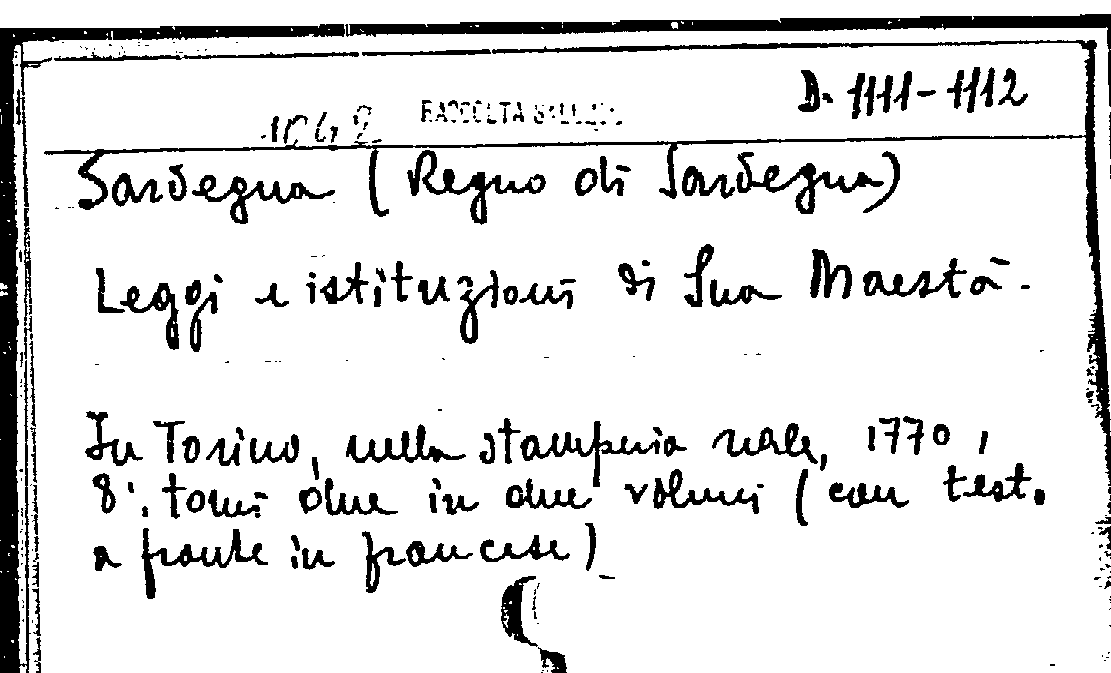 D. 1111-1112
1042 RACCOLTA
Sardegna (Regno di Sardegna)
Leggi e istituzioni di Sua Maestà.
In Torino, nella stamperia reale, 1770,
8°. tomi due in due volumi (con test.
a fronte in francese)